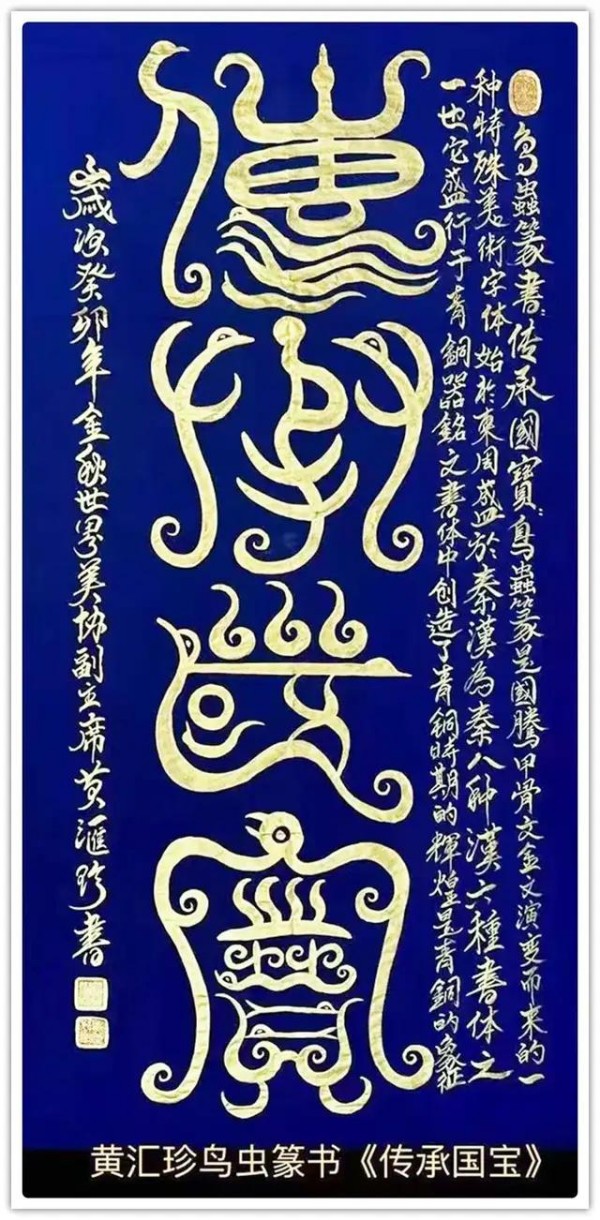 鸟蟲篆書:传承國寶:鳥蟲篆是國騰甲骨文金文演变而来的一
种特殊美術字体始於東周盛於秦漢为秦八种漢六種書体之
一也它盛行于青銅器銘文書体中创造了青銅時期的輝煌是青銅的象征
傳承國寶
歲次癸卯年金秋世界美协副主席黄滙珍書
黄汇珍鸟虫篆书《传承国宝》